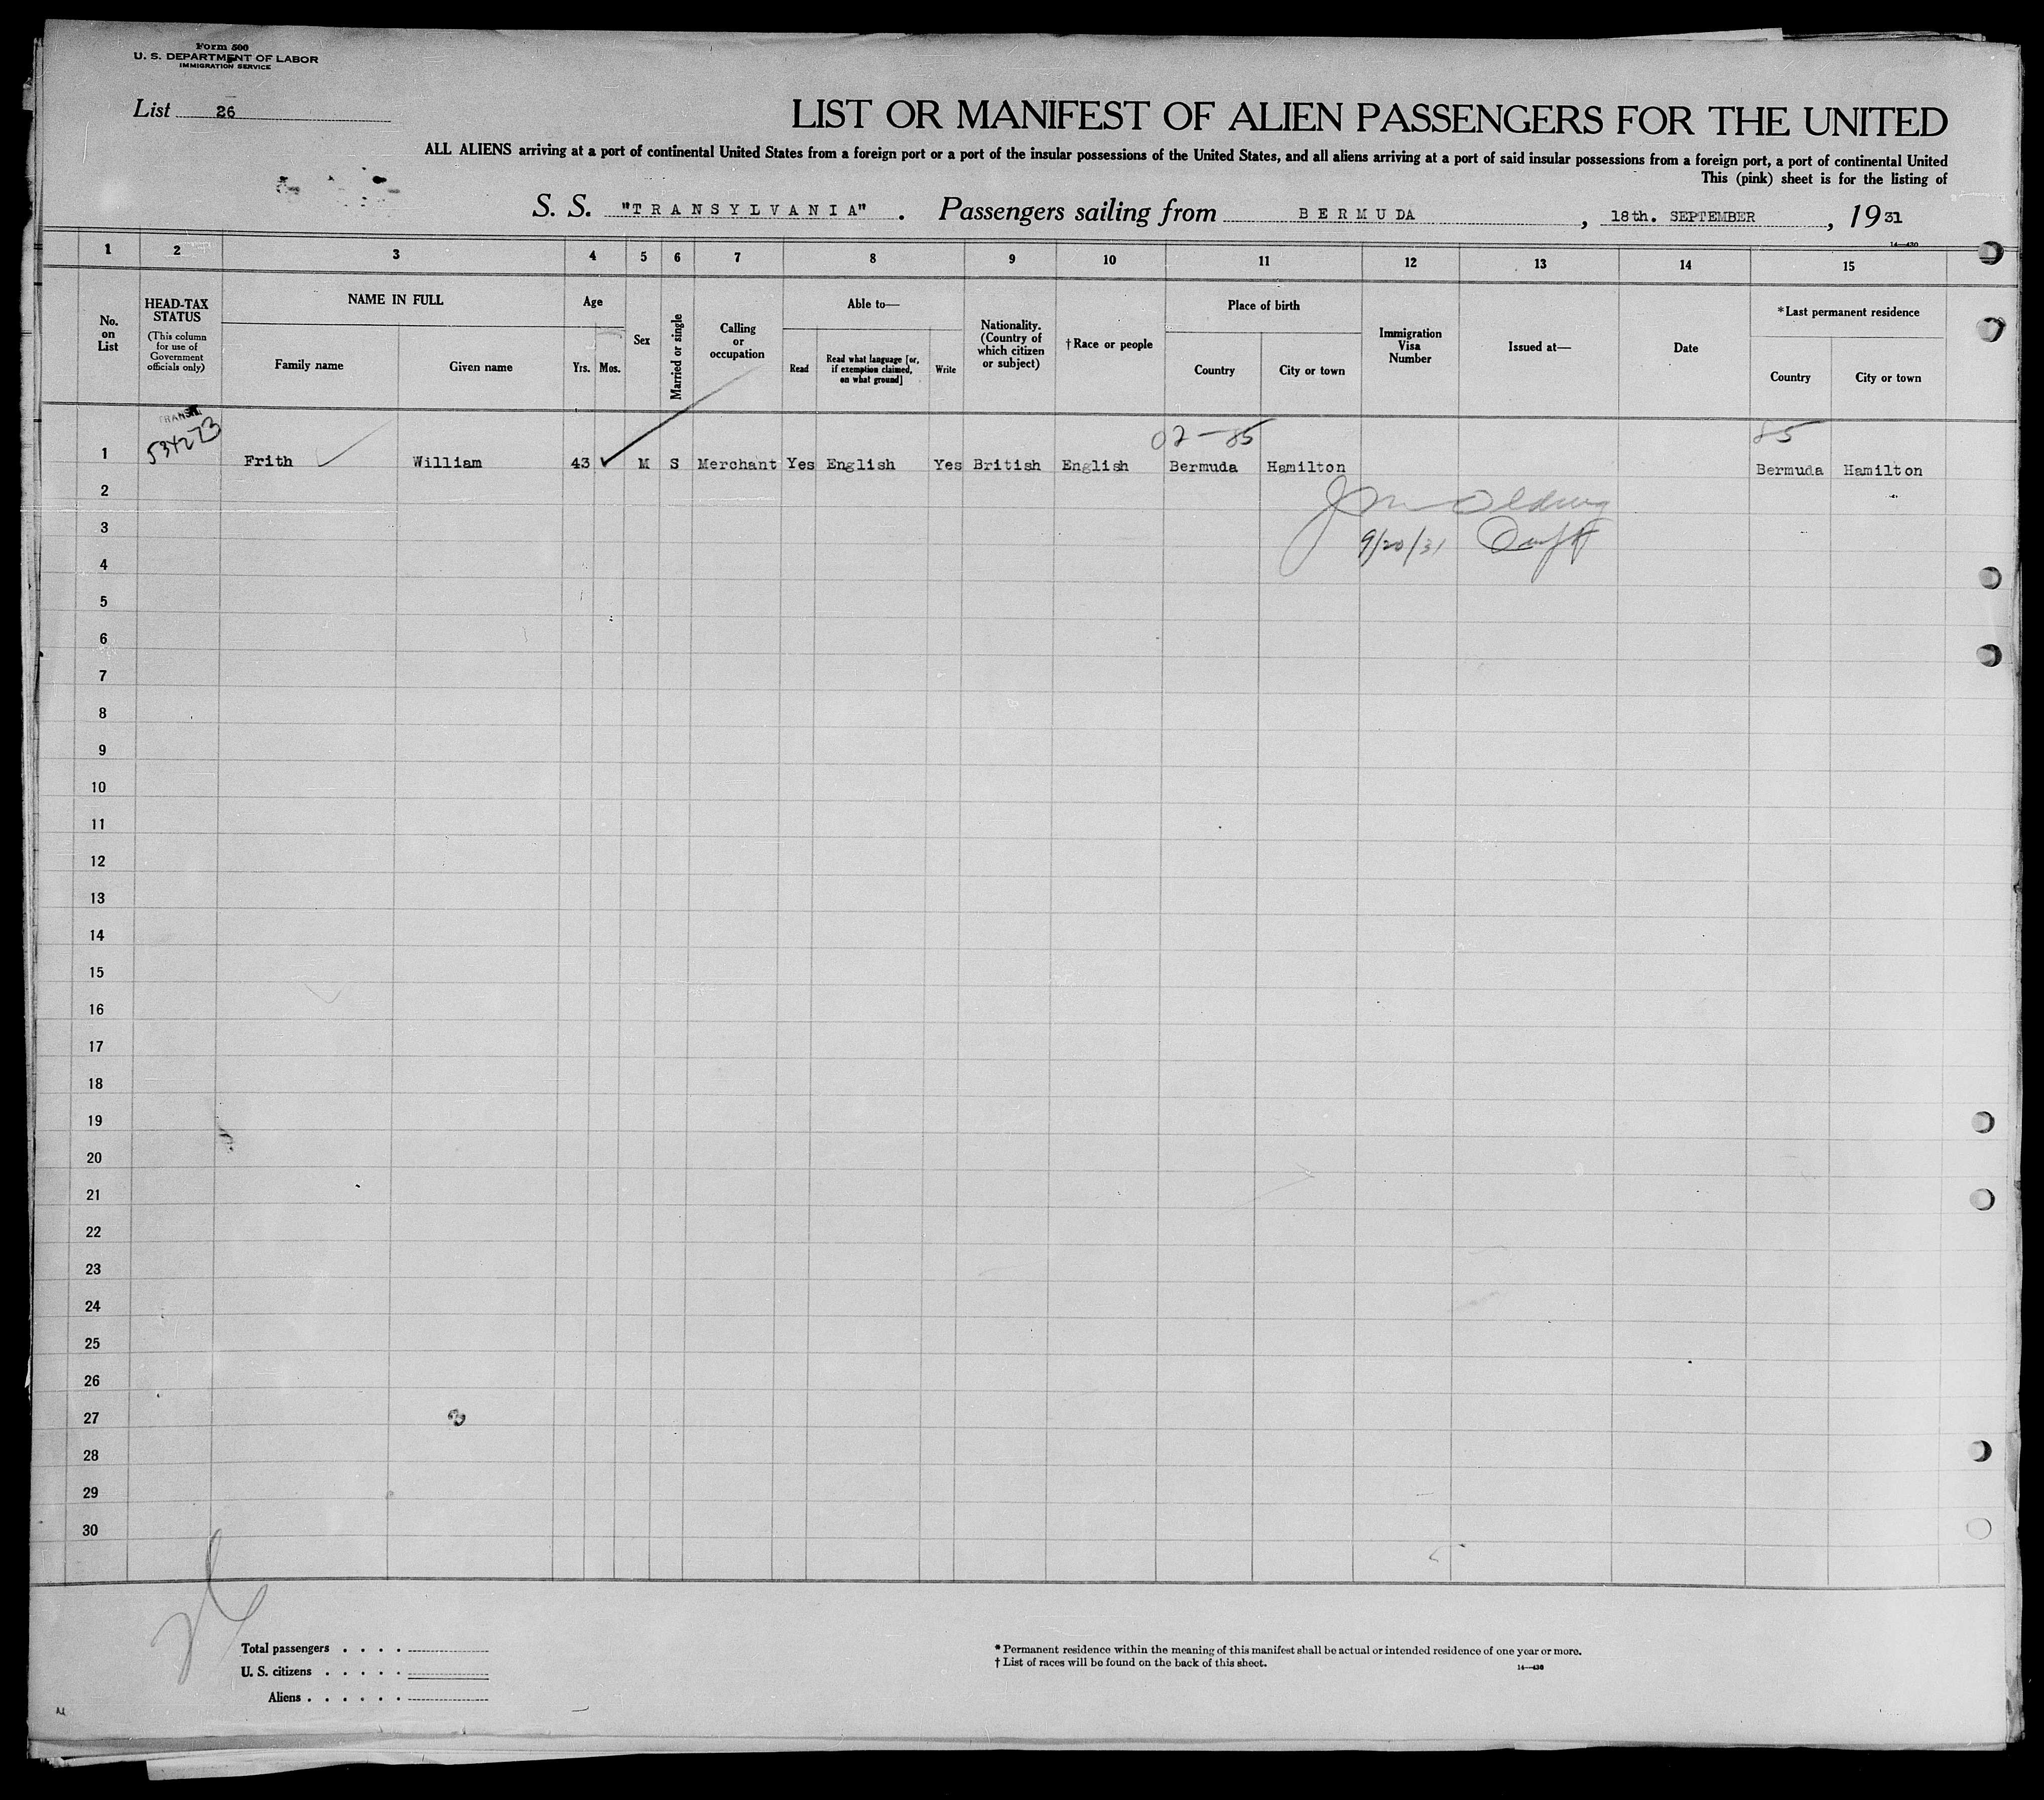 Form 500
U. S. DEPARTMENT OF LABOR
IMMIGRATION SERVICE
List 26
LIST OR MANIFEST OF ALIEN PASSENGERS FOR THE UNITED
ALL ALIENS arriving at a port of continental United States from a foreign port or a port of the insular possessions of the United States, and all aliens arriving at a port of said insular possessions from a foreign port, a port of continental United
This (pink) sheet is for the listing of
S. S. "TRANSYLVANIA" . Passengers sailing from BERMUDA , 18th. SEPTEMBER , 19 31
14—430
1 2 3 4 5 6 7 8 9 10 11 12 13 14 15
No. on List
HEAD-TAX STATUS (This column for use of Government officials only)
NAME IN FULL
Family name Given name
Age
Yrs. Mos.
Sex
Married or single
Calling or occupation
Able to—
Read Read what language [or, if exemption claimed, on what ground] Write
Nationality. (Country of which citizen or subject)
† Race or people
Place of birth
Country City or town
Immigration Visa Number
Issued at—
Date
* Last permanent residence
Country City or town
TRANSIT
534273
02-85 85
1 Frith William 43 M S Merchant Yes English Yes British English Bermuda Hamilton Bermuda Hamilton
2
3
9/20/31
4
5
6
7
8
9
10
11
12
13
14
15
16
17
18
19
20
21
22
23
24
25
26
27
28
29
30
Total passengers . . . .
U. S. citizens . . . . .
Aliens . . . . . .
* Permanent residence within the meaning of this manifest shall be actual or intended residence of one year or more.
† List of races will be found on the back of this sheet.
14—430